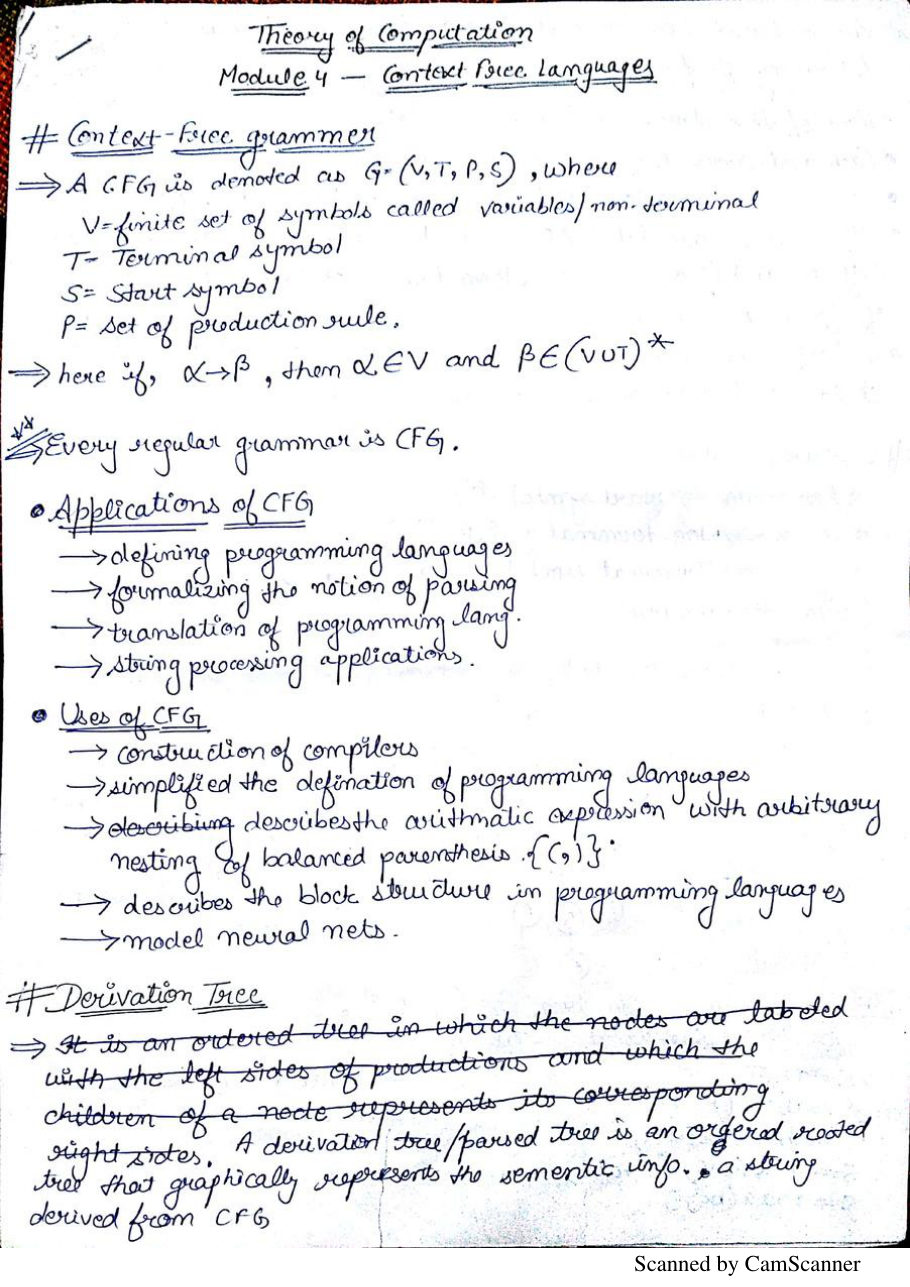 Theory of Computation
Module 4 — Context Free Languages
# Context-Free grammer
⇒ A CFG is denoted as G=(V,T,P,S), where
V=finite set of symbols called variables/non-terminal
T- Terminal symbol
S= Start symbol
P= set of production rule.
⇒ here if, α→β, then α∈V and β∈(VUT)*
⇒ Every regular grammar is CFG.
• Applications of CFG
→ defining programming languages
→ formalizing the notion of parsing
→ translation of programming lang.
→ string processing applications.
• Uses of CFG
→ construction of compilers
→ simplified the defination of programming languages
→ describing describes the arithmatic expression with arbitrary
nesting of balanced parenthesis .{(,)}.
→ describes the block structure in programming languages
→ model neural nets.
# Derivation Tree
⇒ It is an ordered tree in which the nodes are labeled
with the left sides of productions and which the
children of a node represents its corresponding
right sides. A derivation tree/parsed tree is an ordered rooted
tree that graphically represents the sementic info. a string
derived from CFG
Scanned by CamScanner